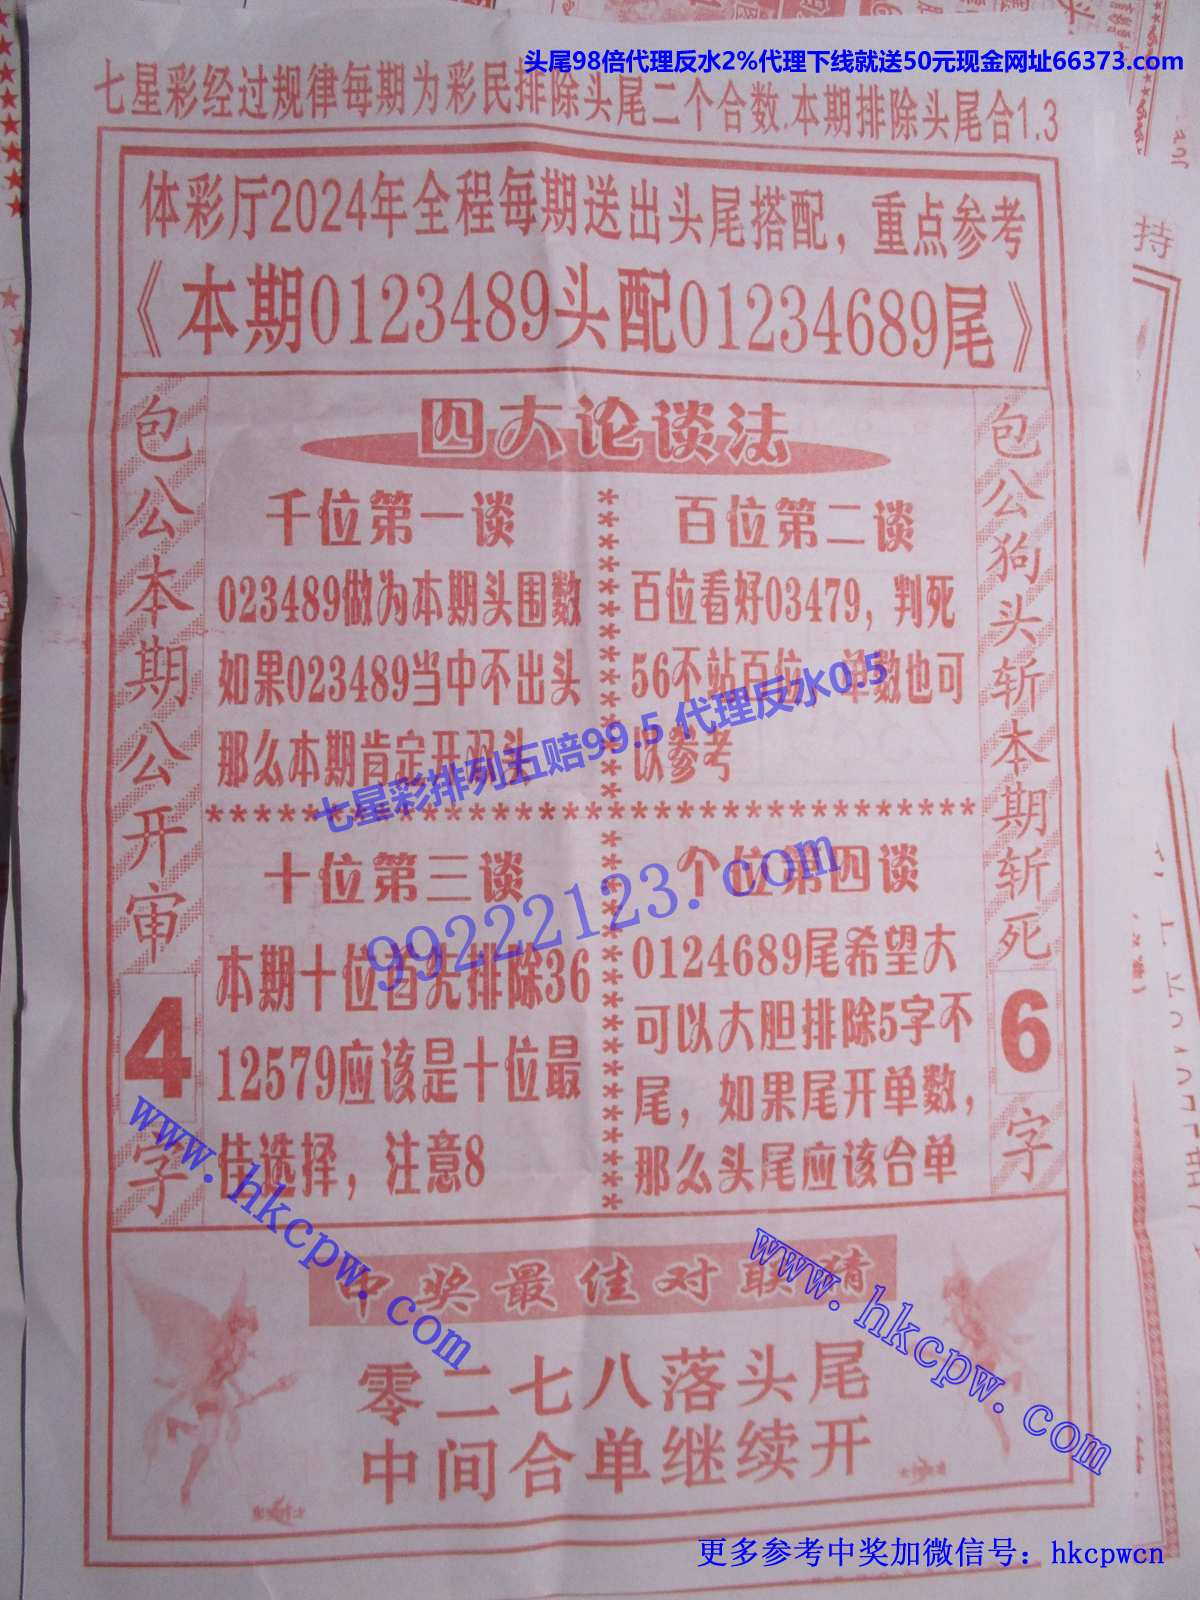 头尾98倍代理反水2%代理下线就送50元现金网址66373.com
七星彩经过规律每期为彩民排除头尾二个合数.本期排除头尾合1.3
体彩厅2024年全程每期送出头尾搭配，重点参考
《本期0123489头配01234689尾》
包公本期公开审4字
四大论谈法
千位第一谈
023489做为本期头围数
如果023489当中不出头
那么本期肯定开羽头
百位第二谈
百位看好03479，判死
56不站百位，单数也可
以参考
七星彩排列五赔99.5 代理反水0.5
十位第三谈
本期十位首先排除36
12579应该是十位最
佳选择，注意8
个位第四谈
0124689尾希望大
可以大胆排除5字不
尾，如果尾开单数，
那么头尾应该合单
99222123.com
包公狗头斩本期斩死6字
www.hkcpw.com
www.hkcpw.com
中奖最佳对联猜
零二七八落头尾
中间合单继续开
更多参考中奖加微信号：hkcpwcn
持